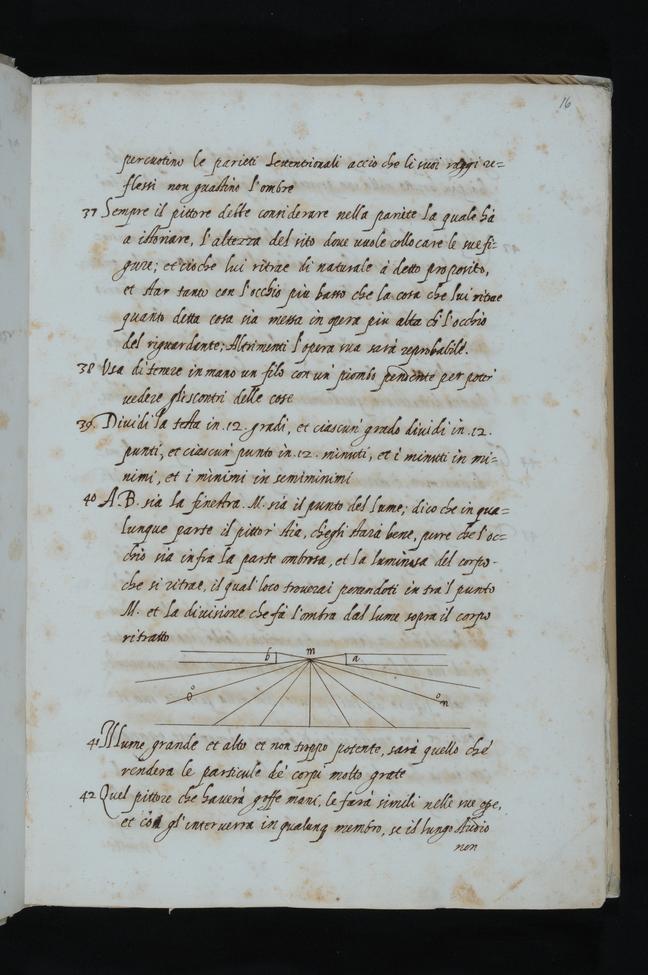 16
percuotino le parieti settentrionali accio che li suoi raggi re=
flessi non guastino l'ombre
37 Sempre il pittore debbe considerare nella pariete la quale hà
a istoriare, l'altezza del sito doue uuole collocare le sue fi=
gure; et cioche lui ritrae di naturale à detto proposito,
et star tanto con l'occhio piu basso che la cosa che lui ritrae
quanto detta cosa sia messa in opera piu alta ch' l'occhio
del riguardante; Altrimenti l'opera sua sarà reprobabile.
38 Usa di tenere in mano un filo con un' piombo pendente per poter'
uedere gli scontri delle cose
39. Diuidi la testa in .12. gradi, et ciascun' grado diuidi in .12.
punti, et ciascun' punto in .12. minuti, et i minuti in mi=
nimi, et i minimi in semiminimi
40 A.B. sia la finestra. M. sia il punto del lume; dico che in qua=
lunque parte il pittor' stia, ch'egli starà bene, pure che l'oc=
chio sia infra la parte ombrosa, et la luminosa del corpo
che si ritrae, il qual' loco trouerai ponendoti in tra 'l punto
M. et la diuisione che fà l'ombra dal lume sopra il corpo
ritratto
b m a
o n
41 Il lume grande et alto et non troppo potente, sarà quello che
renderà le particule de' corpi molto grate
42 Quel pittore che hauerà goffe mani, le farà simili nelle sue ope,
et così gl'interuerrà in qualunq membro, se il lungo studio
non